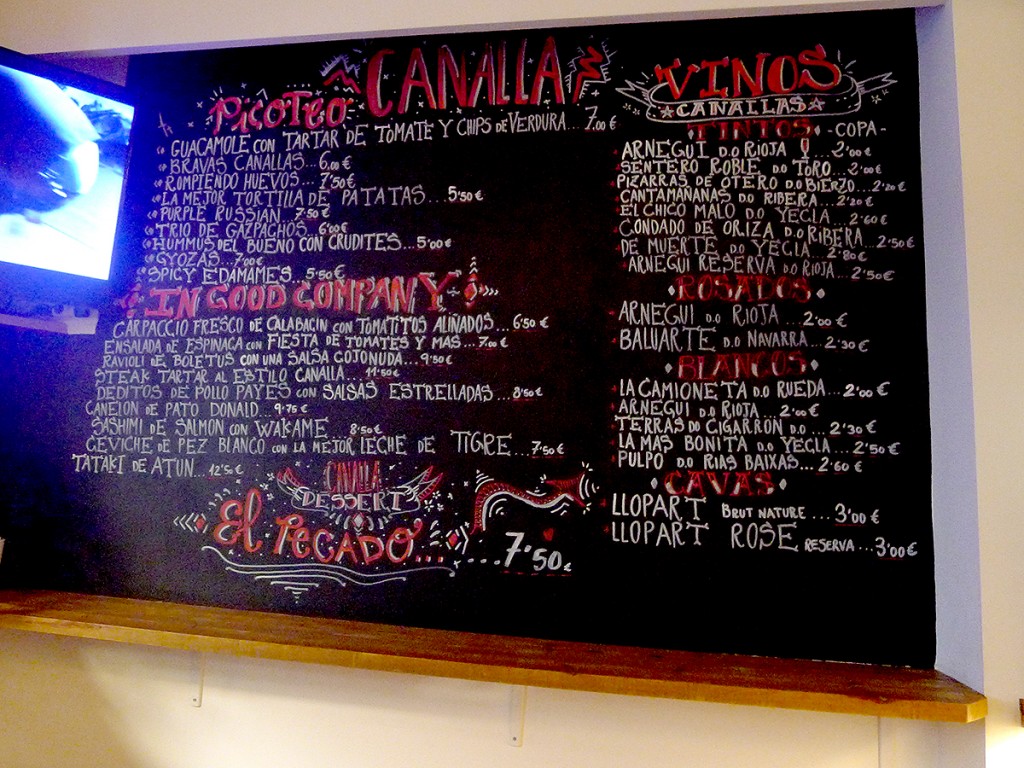 CANALLA
PICOTEO
GUACAMOLE CON TARTAR DE TOMATE Y CHIPS DE VERDURA... 7'00 €
BRAVAS CANALLAS... 6'00 €
ROMPIENDO HUEVOS... 7'50 €
LA MEJOR TORTILLA DE PATATAS... 5'50 €
PURPLE RUSSIAN... 7'50 €
TRIO DE GAZPACHOS... 6'00 €
HUMMUS DEL BUENO CON CRUDITES... 5'00 €
GYOZAS... 7'00 €
SPICY EDAMAMES... 5'50 €
IN GOOD COMPANY
CARPACCIO FRESCO DE CALABACIN CON TOMATITOS ALIÑADOS... 6'50 €
ENSALADA DE ESPINACA CON FIESTA DE TOMATES Y MAS... 7'00 €
RAVIOLI DE BOLETUS CON UNA SALSA COJONUDA... 9'50 €
STEAK TARTAR AL ESTILO CANALLA... 11'50 €
DEDITOS DE POLLO PAYES CON SALSAS ESTRELLADAS... 8'50 €
CANELON DE PATO DONALD... 9'75 €
SASHIMI DE SALMON CON WAKAME 8'50 €
CEVICHE DE PEZ BLANCO CON LA MEJOR LECHE DE TIGRE... 7'50 €
TATAKI DE ATUN... 12'50 €
CANALLA
DESSERT
EL PECADO... 7'50 €
VINOS
CANALLAS
TINTOS -COPA-
ARNEGUI D.O RIOJA ... 2'00 €
SENTERO ROBLE D.O TORO... 2'00 €
PIZARRAS DE OTERO D.O BIERZO... 2'20 €
CANTAMAÑANAS D.O RIBERA... 2'20 €
EL CHICO MALO D.O YECLA... 2'60 €
CONDADO DE ORIZA D.O RIBERA... 2'50 €
DE MUERTE D.O YECLA... 2'80 €
ARNEGUI RESERVA D.O RIOJA... 2'50 €
ROSADOS
ARNEGUI D.O RIOJA ... 2'00 €
BALUARTE D.O NAVARRA... 2'30 €
BLANCOS
LA CAMIONETA D.O RUEDA... 2'00 €
ARNEGUI D.O RIOJA... 2'00 €
TERRAS DO CIGARRON D.O ... 2'30 €
LA MAS BONITA D.O YECLA... 2'50 €
PULPO D.O RIAS BAIXAS... 2'60 €
CAVAS
LLOPART BRUT NATURE ... 3'00 €
LLOPART ROSE RESERVA... 3'00 €